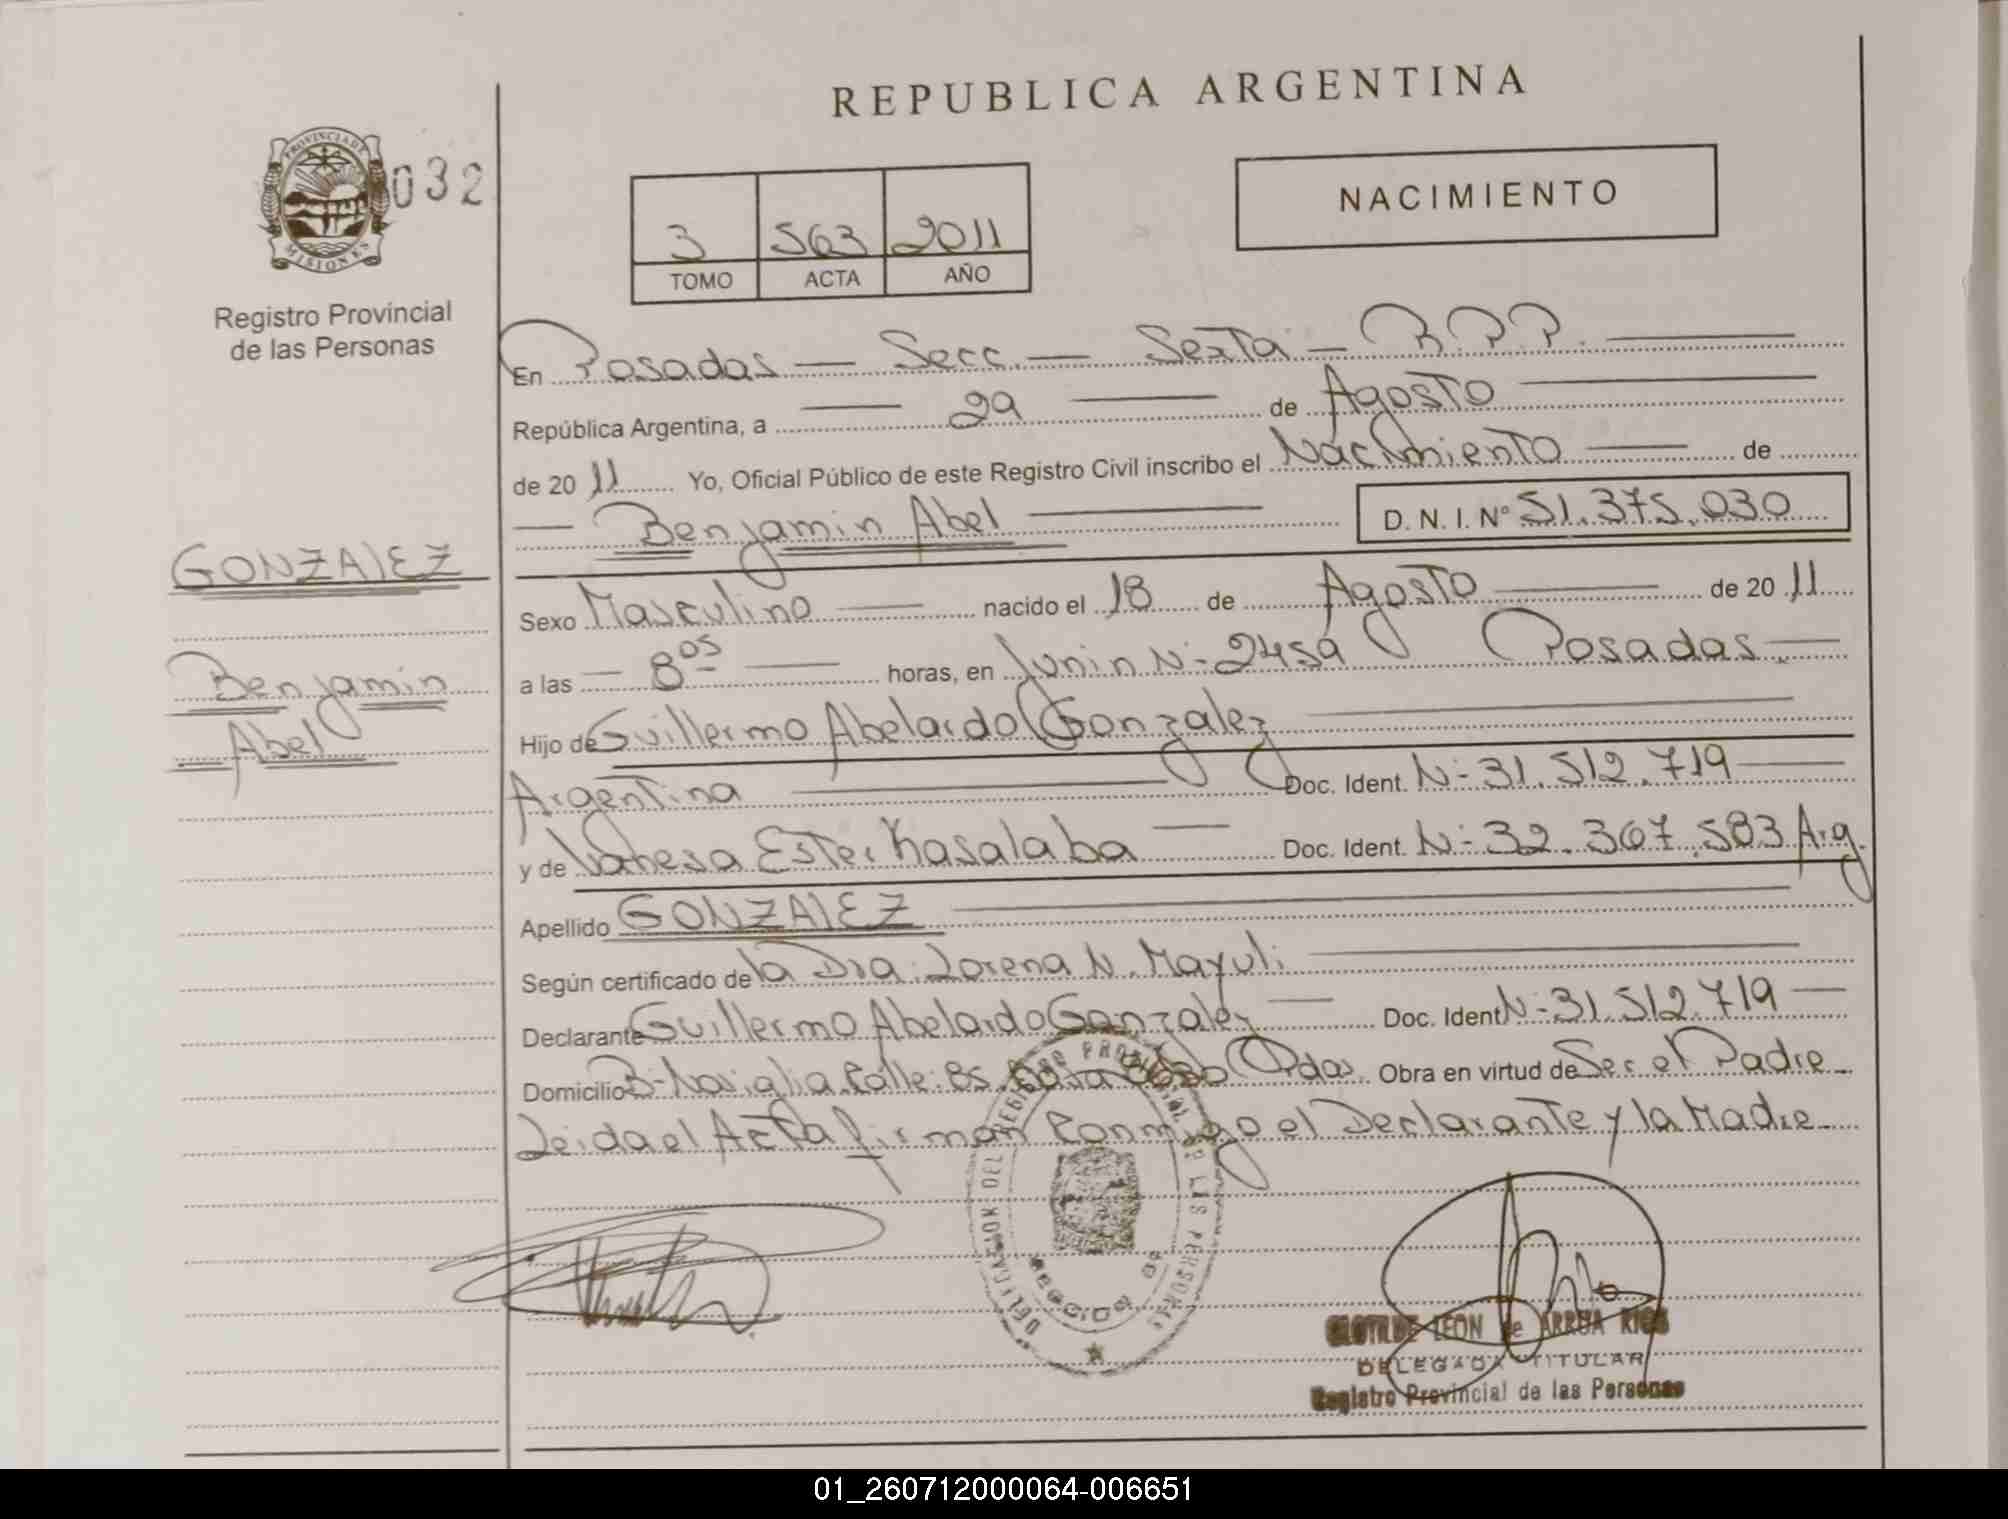 REPUBLICA ARGENTINA
PROVINCIA DE
MISIONES
032
Registro Provincial
de las Personas
3 563 2011
TOMO ACTA AÑO
NACIMIENTO
En Posadas — Secc. — Sexta — R.P.P.
República Argentina, a — 29 — de Agosto
de 2011 Yo, Oficial Público de este Registro Civil inscribo el Nacimiento — de
— Benjamin Abel — D. N. I. Nº 51.375.030
GONZALEZ
Benjamin
Abel
Sexo Masculino — nacido el 18 de Agosto — de 2011
a las — 8 05 — horas, en Junin Nº 2459 Posadas. —
Hijo de Guillermo Abelardo Gonzalez
Argentina — Doc. Ident. Nº 31.512.719 —
y de Vanesa Ester Kasalaba — Doc. Ident. Nº 32.367.583 Arg.
Apellido GONZALEZ
Según certificado de la Dra. Lorena N. Mayuli
Declarante Guillermo Abelardo Gonzalez — Doc. Ident Nº 31.512.719 —
Domicilio Bº Calle: Bs. Pdas. Obra en virtud de Ser el Padre
Leida el Acta firman Conmigo el Declarante y la Madre
DELEGACION DEL REGISTRO PROVINCIAL DE LAS PERSONAS
CLOTILDE LEON de ARRUA RIOS
DELEGADA TITULAR
Registro Provincial de las Personas
01_260712000064-006651